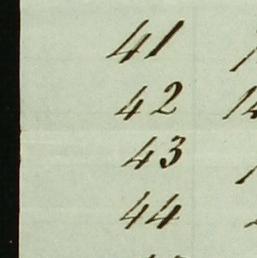 41
42 12
43
44